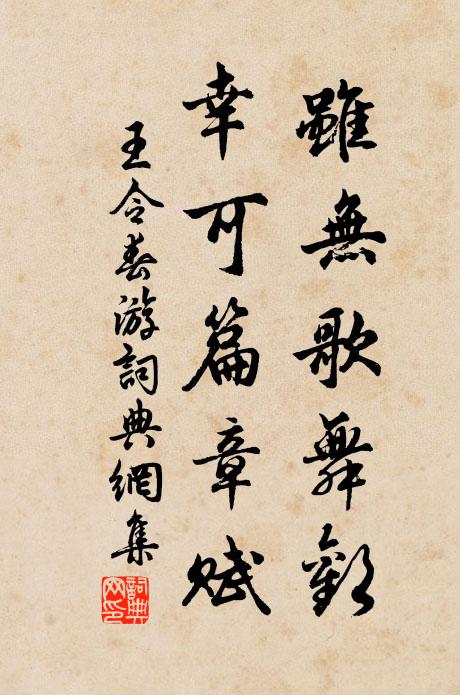 雖無歌舞歡
幸可篇章賦
王令春游詞典網集
詞典
网印